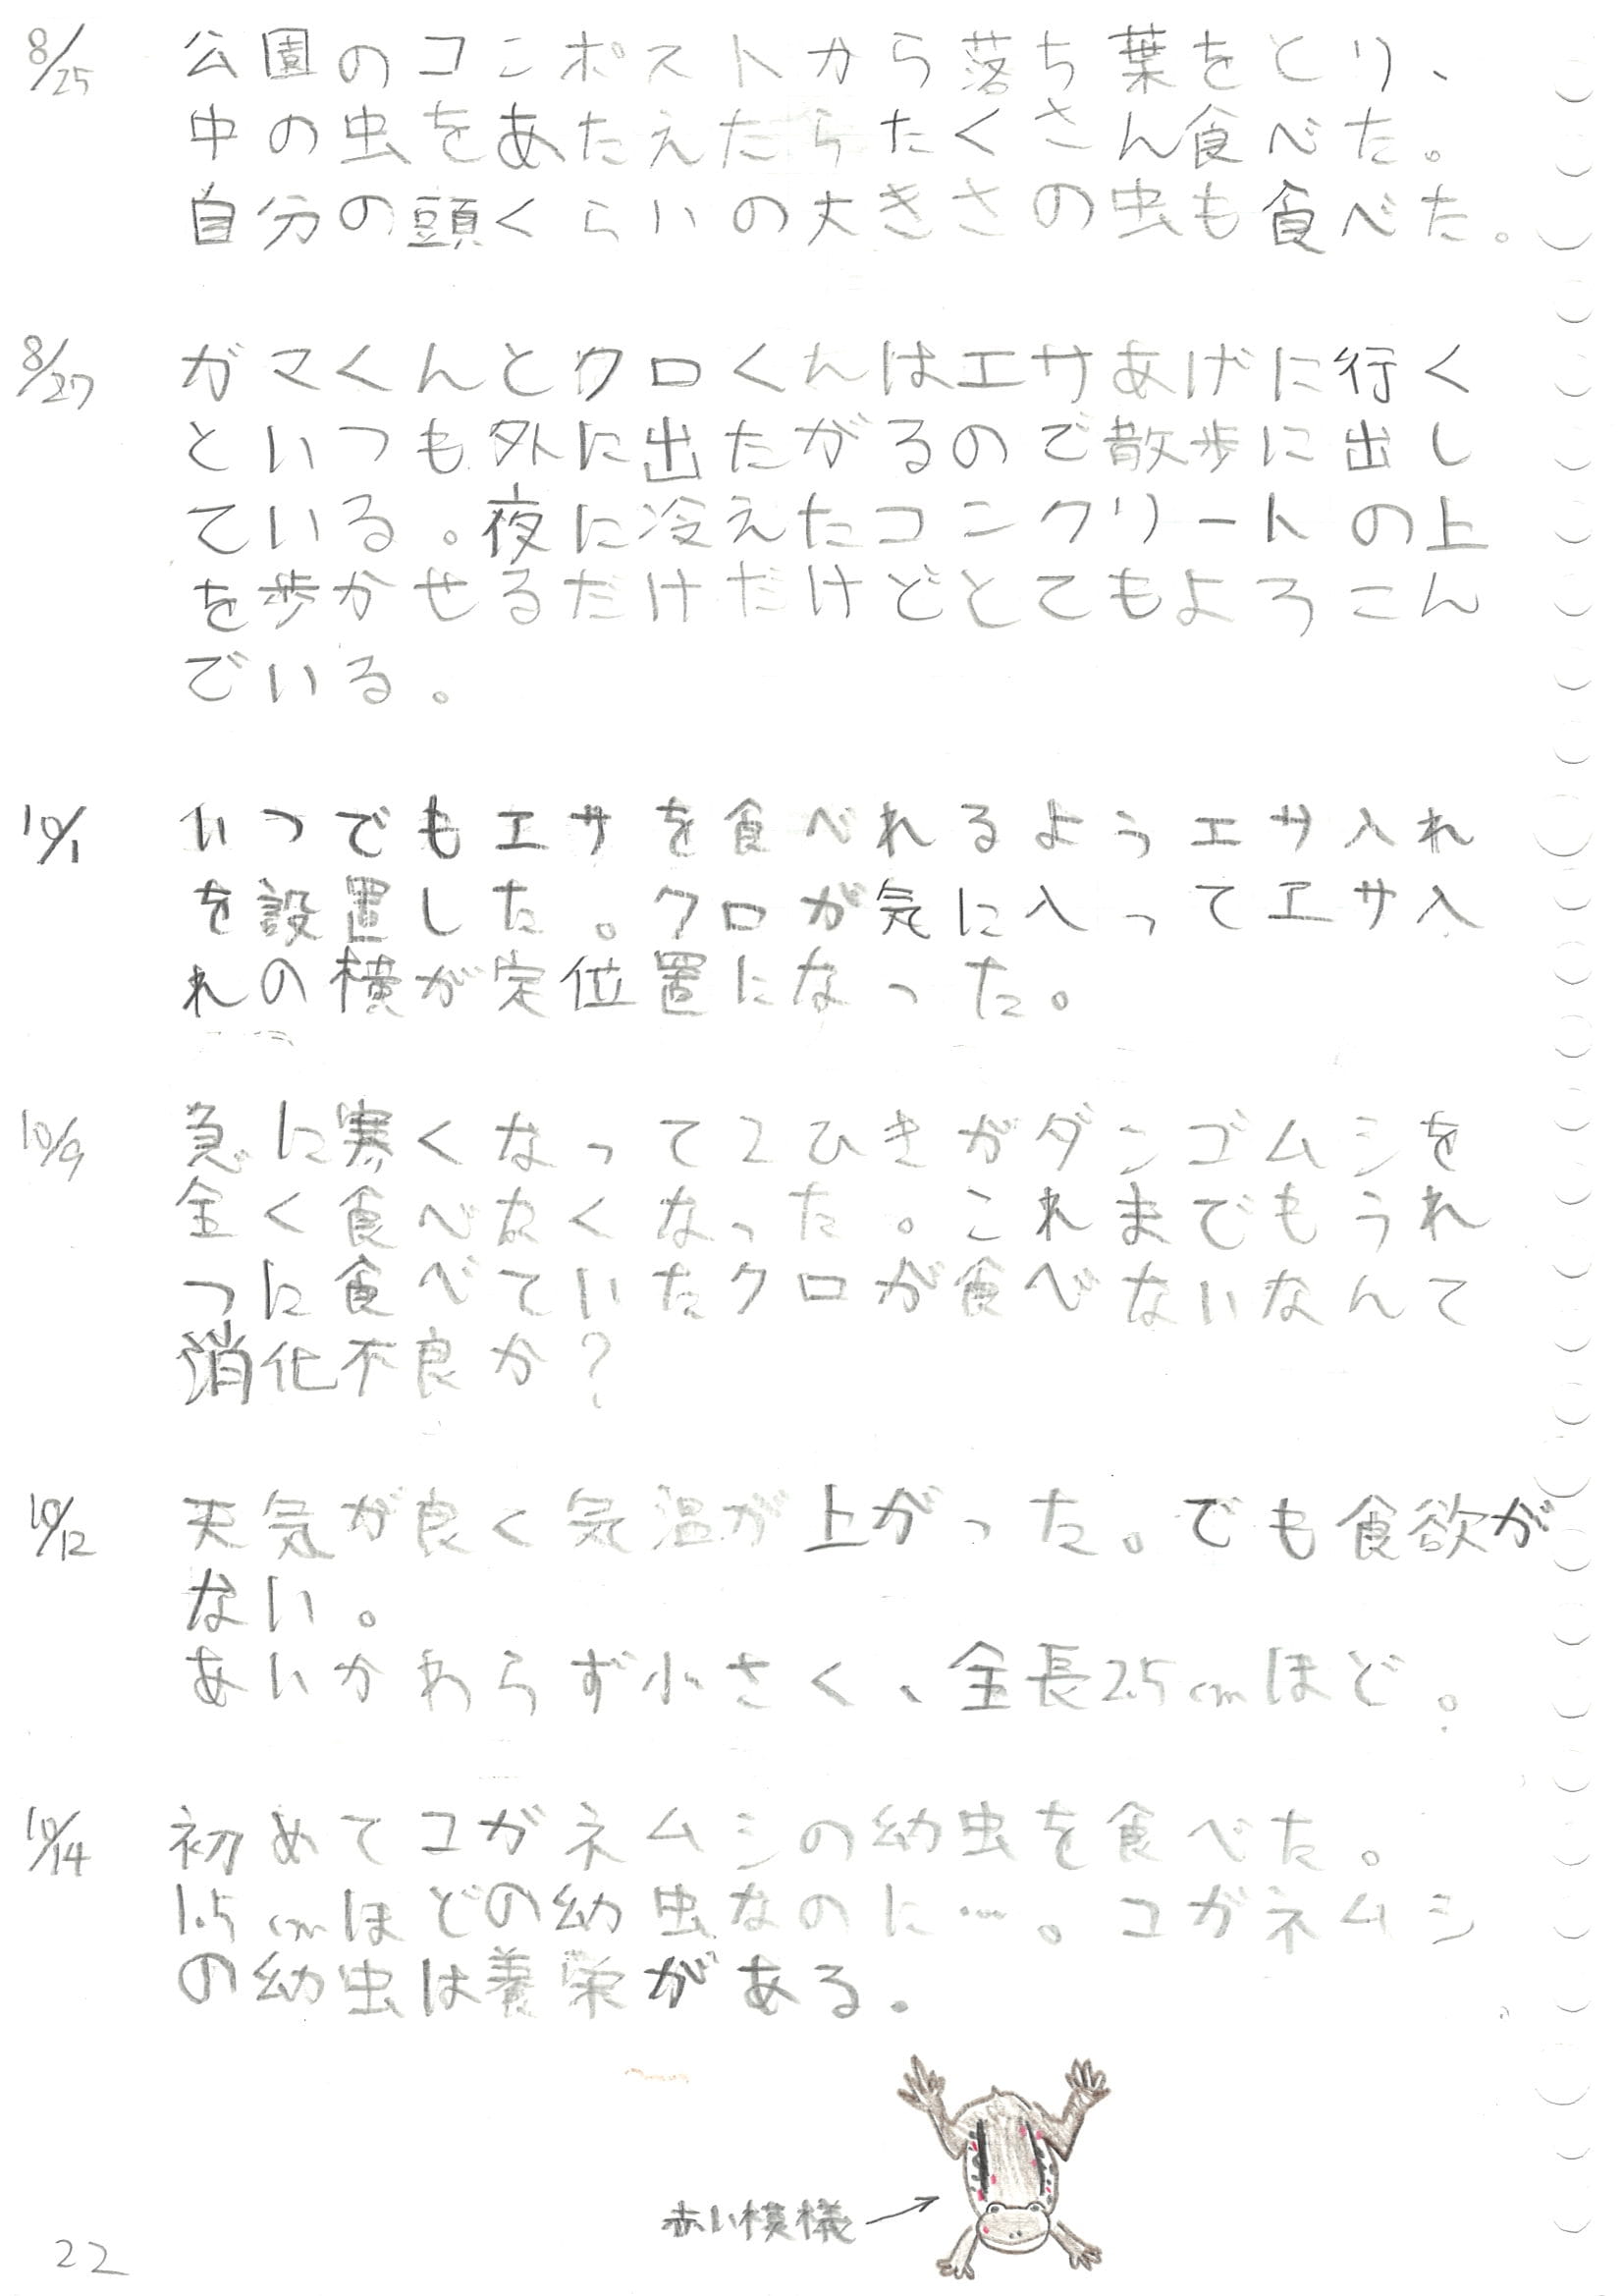 8/25 公園のコンポストから落ち葉をとり、
中の虫をあたえたらたくさん食べた。
自分の頭くらいの大きさの虫も食べた。
8/27 ガマくんとクロくんはエサあげに行く
といつも外に出たがるので散歩に出し
ている。夜に冷えたコンクリートの上
を歩かせるだけだけどとてもよろこん
でいる。
10/1 いつでもエサを食べれるようエサ入れ
を設置した。クロが気に入ってエサ入
れの横が定位置になった。
10/9 急に寒くなって2ひきがダンゴムシを
全く食べなくなった。これまでもうれ
つに食べていたクロが食べないなんて
消化不良か?
10/12 天気が良く気温が上がった。でも食欲が
ない。
あいかわらず小さく、全長2.5cmほど。
10/14 初めてコガネムシの幼虫を食べた。
1.5cmほどの幼虫なのに…。コガネムシ
の幼虫は養栄がある。
赤い模様→
22